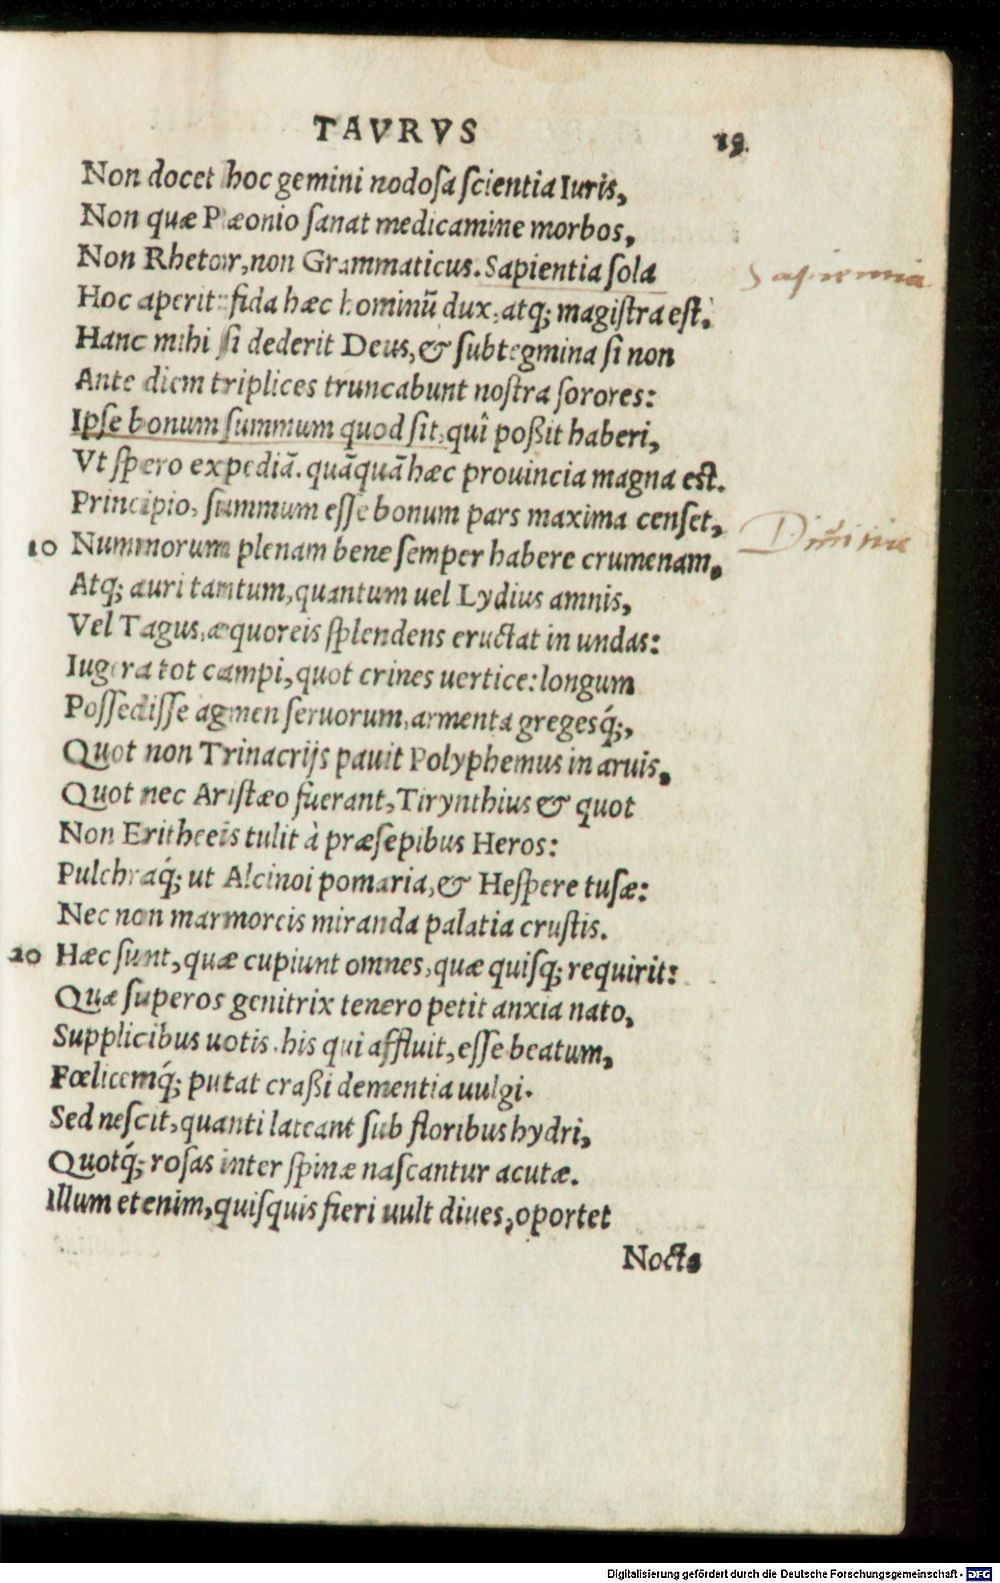 TAVRVS 19.
Non docet hoc gemini nodosa scientia Iuris,
Non quæ Pæonio sanat medicamine morbos,
Non Rhetor, non Grammaticus. Sapientia sola
Sapientia
Hoc aperit: fida hæc hominũ dux, atq; magistra est.
Hanc mihi si dederit Deus, & subtegmina si non
Ante diem triplices truncabunt nostra sorores:
Ipse bonum summum quod sit, quî poßit haberi,
Vt spero expediã. quãquã hæc prouincia magna est.
Principio, summum esse bonum pars maxima censet,
10 Nummorum plenam bene semper habere crumenam,
Atq; auri tantum, quantum uel Lydius amnis,
Vel Tagus, æquoreis splendens eructat in undas:
Iugera tot campi, quot crines uertice: longum
Possedisse agmen seruorum, armenta gregesq́;,
Quot non Trinacrijs pauit Polyphemus in aruis,
Quot nec Aristæo fuerant, Tirynthius & quot
Non Eritheeis tulit à præsepibus Heros:
Pulchraq́; ut Alcinoi pomaria, & Hespere tusæ:
Nec non marmoreis miranda palatia crustis.
20 Hæc sunt, quæ cupiunt omnes, quæ quisq; requirit:
Quæ superos genitrix tenero petit anxia nato,
Supplicibus uotis. his qui affluit, esse beatum,
Fœlicemq́; putat craßi dementia uulgi.
Sed nescit, quanti lateant sub floribus hydri,
Quotq́; rosas inter spinæ nascantur acutæ.
Illum etenim, quisquis fieri uult diues, oportet
Nocte
Digitalisierung gefördert durch die Deutsche Forschungsgemeinschaft - DFG